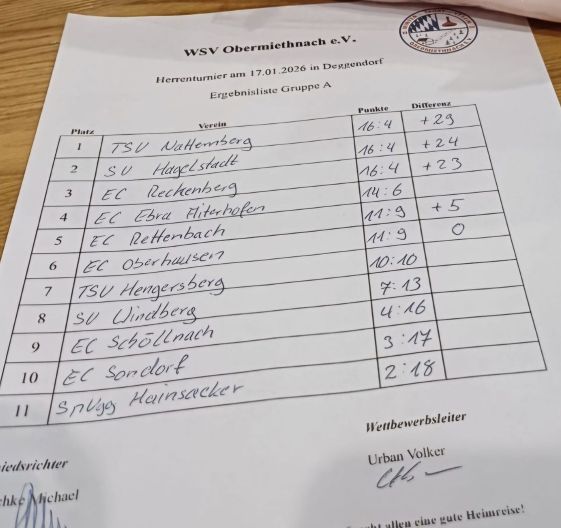 WSV Obermiethnach e.V.
Herrenturnier am 17.01.2026 in Deggendorf
Ergebnisliste Gruppe A
Platz Verein Punkte Differenz
1 TSV Natternberg 16:4 +29
2 SV Hagelstadt 16:4 +24
3 EC Reckenberg 16:4 +23
4 EC Ebra Aiterhofen 14:6
5 EC Rettenbach 11:9 +5
6 EC Oberhausen 11:9 0
7 TSV Hengersberg 10:10
8 SV Windberg 7:13
9 EC Schöllnach 4:16
10 EC Sondorf 3:17
11 SpVgg Hainsacker 2:18
Wettbewerbsleiter
iedsrichter
Urban Volker
chke Michael
allen eine gute Heimreise!